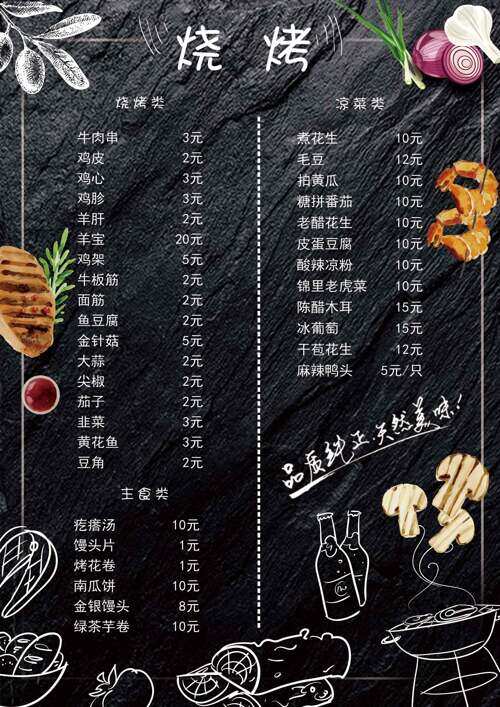 烧 烤
烧烤类
牛肉串 3元
鸡皮 2元
鸡心 3元
鸡胗 3元
羊肝 2元
羊宝 20元
鸡架 5元
牛板筋 2元
面筋 2元
鱼豆腐 2元
金针菇 5元
大蒜 2元
尖椒 2元
茄子 2元
韭菜 3元
黄花鱼 3元
豆角 2元
主食类
疙瘩汤 10元
馒头片 1元
烤花卷 1元
南瓜饼 10元
金银馒头 8元
绿茶芋卷 10元
凉菜类
煮花生 10元
毛豆 12元
拍黄瓜 10元
糖拼番茄 10元
老醋花生 10元
皮蛋豆腐 10元
酸辣凉粉 10元
锦里老虎菜 10元
陈醋木耳 15元
冰葡萄 15元
干苞花生 12元
麻辣鸭头 5元/只
品质纯正.天然美味!